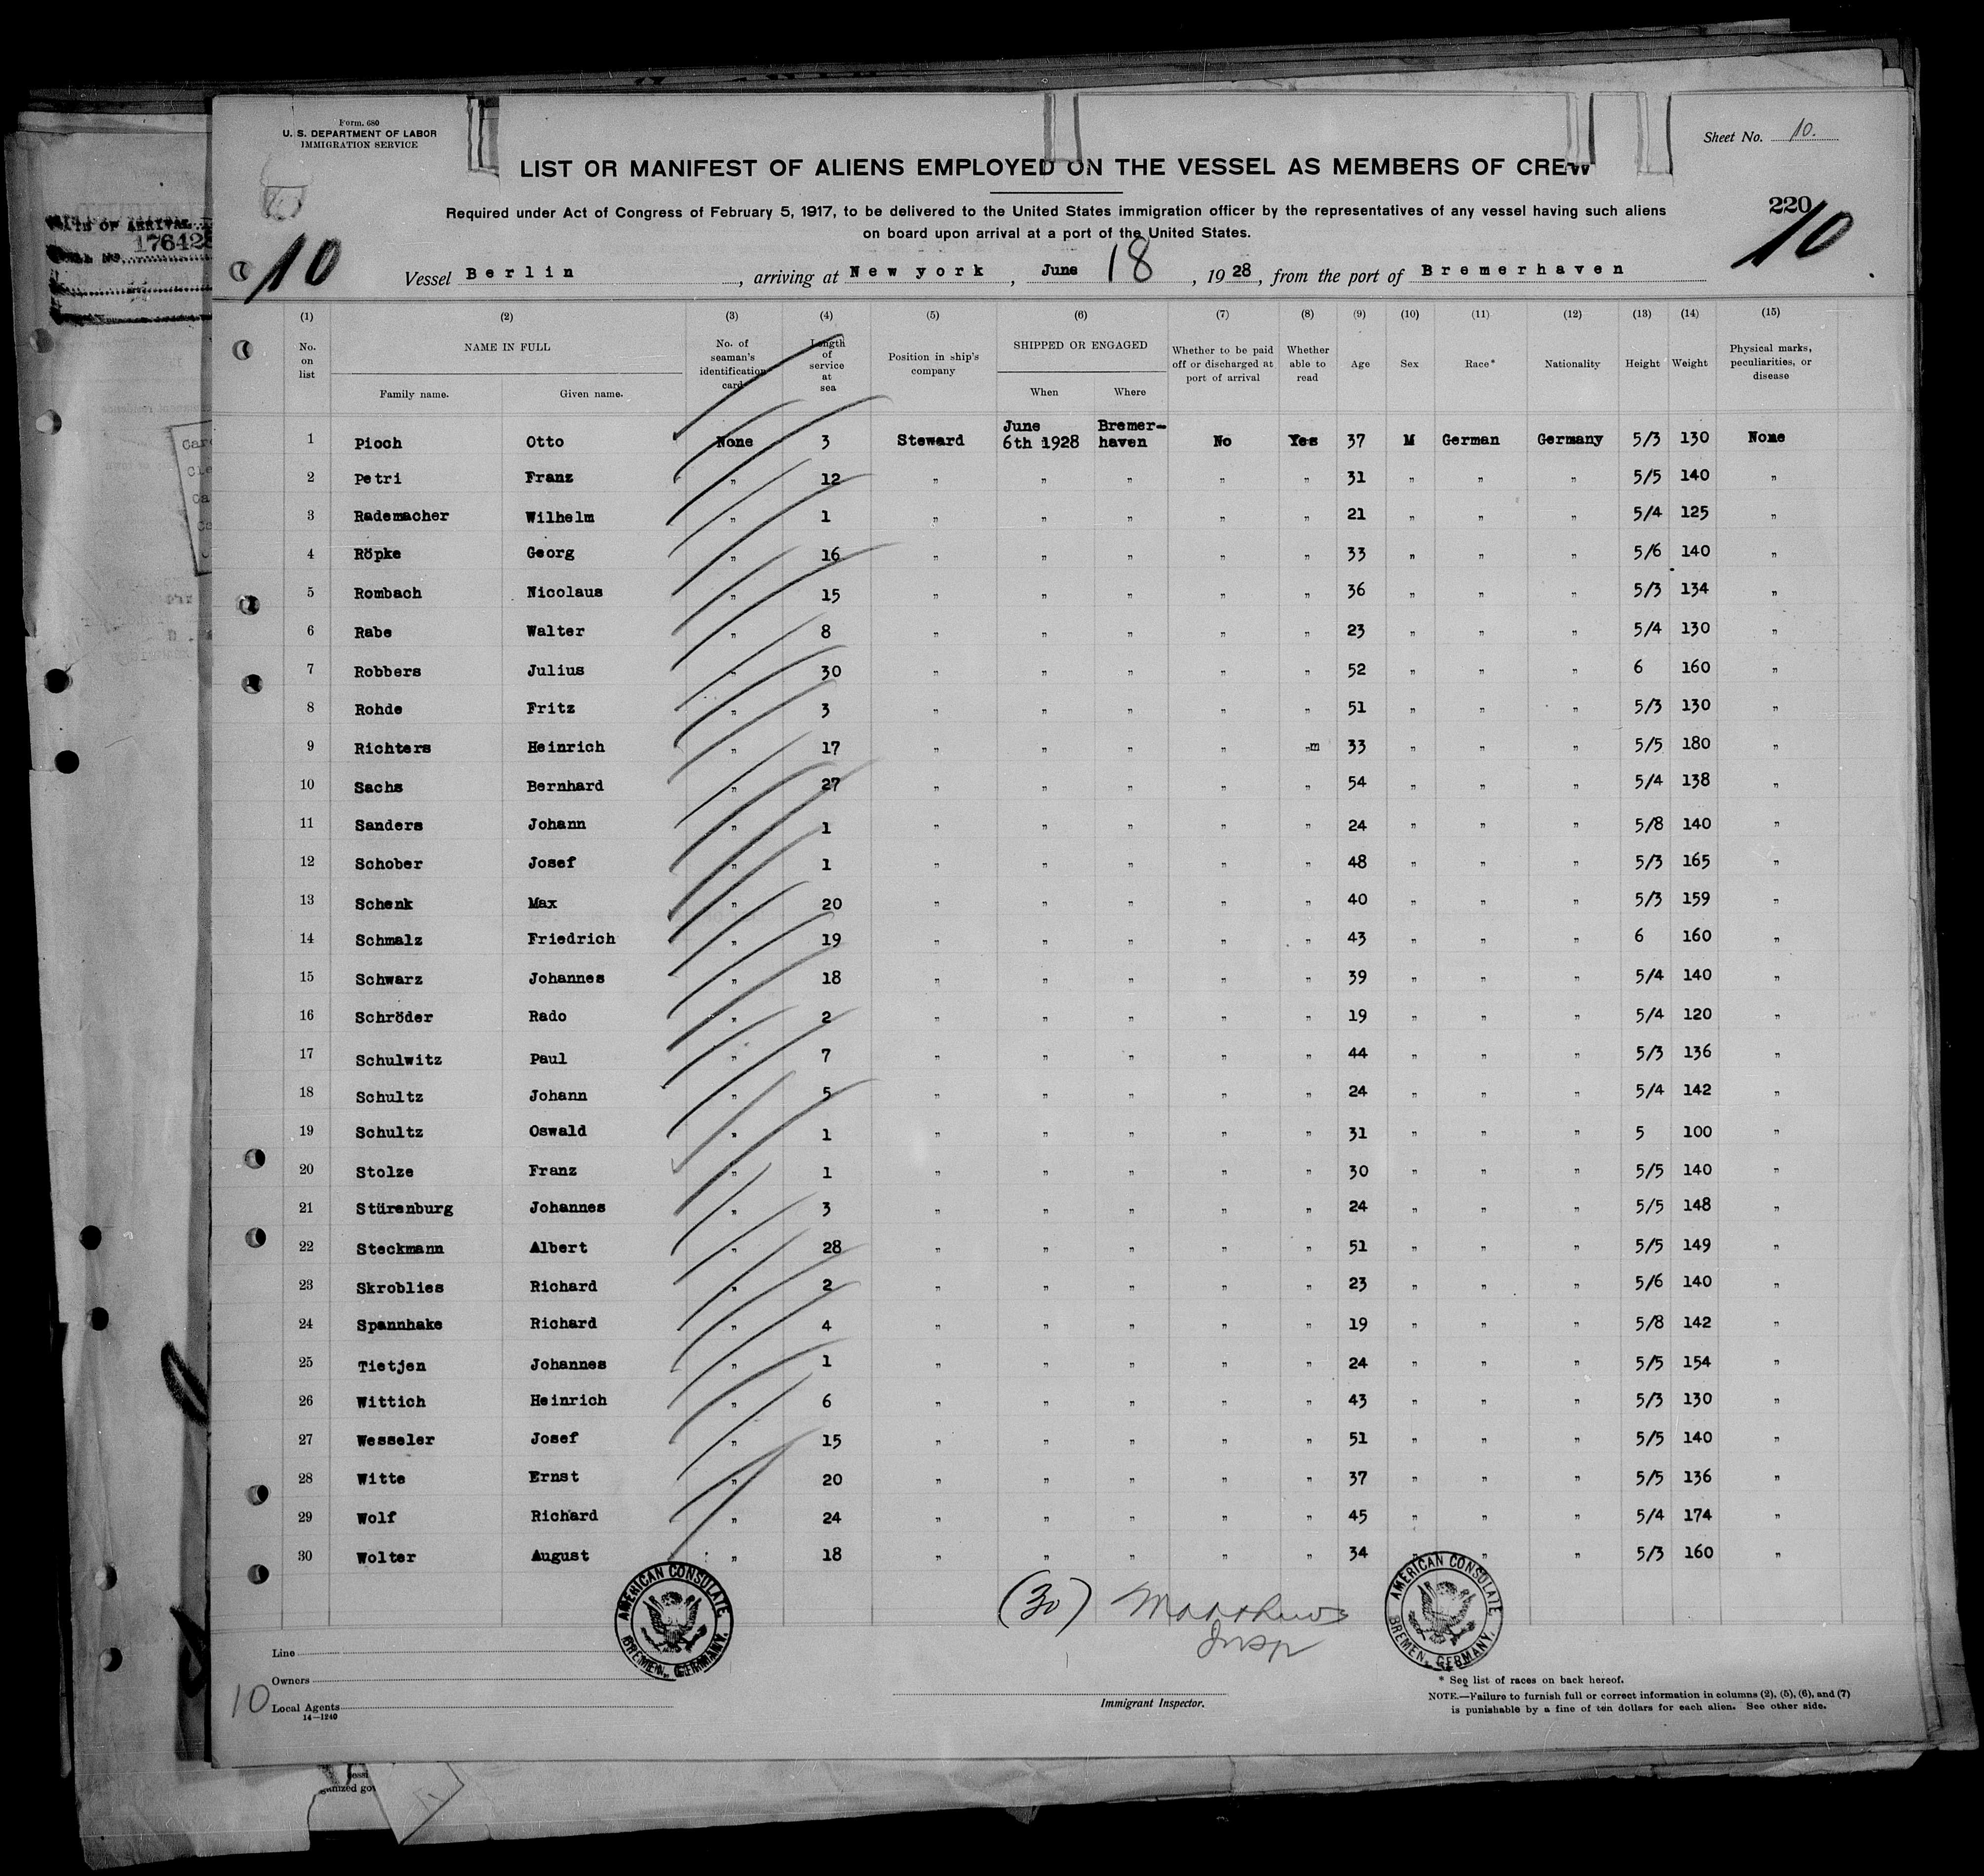 Form. 680
U. S. DEPARTMENT OF LABOR
IMMIGRATION SERVICE
Sheet No. 10.
LIST OR MANIFEST OF ALIENS EMPLOYED ON THE VESSEL AS MEMBERS OF CREW
220
10
10
Required under Act of Congress of February 5, 1917, to be delivered to the United States immigration officer by the representatives of any vessel having such aliens
on board upon arrival at a port of the United States.
Vessel Berlin, arriving at New york, June 18, 1928, from the port of Bremerhaven
OF ARRIVAL
176428
(1) (2) (3) (4) (5) (6) (7) (8) (9) (10) (11) (12) (13) (14) (15)
No. on list
NAME IN FULL
Family name. Given name.
No. of seaman's identification card
Length of service at sea
Position in ship's company
SHIPPED OR ENGAGED
When Where
Whether to be paid off or discharged at port of arrival
Whether able to read
Age
Sex
Race*
Nationality
Height
Weight
Physical marks, peculiarities, or disease
1 Pioch Otto None 3 Steward June 6th 1928 Bremer-haven No Yes 37 M German Germany 5/3 130 None
2 Petri Franz " 12 " " " " " 31 " " " 5/5 140 "
3 Rademacher Wilhelm " 1 " " " " " 21 " " " 5/4 125 "
4 Röpke Georg " 16 " " " " " 33 " " " 5/6 140 "
5 Rombach Nicolaus " 15 " " " " " 36 " " " 5/3 134 "
6 Rabe Walter " 8 " " " " " 23 " " " 5/4 130 "
7 Robbers Julius " 30 " " " " " 52 " " " 6 160 "
8 Rohde Fritz " 3 " " " " " 51 " " " 5/3 130 "
9 Richters Heinrich " 17 " " " " "m 33 " " " 5/5 180 "
10 Sachs Bernhard " 27 " " " " " 54 " " " 5/4 138 "
11 Sanders Johann " 1 " " " " " 24 " " " 5/8 140 "
12 Schober Josef " 1 " " " " " 48 " " " 5/3 165 "
13 Schenk Max " 20 " " " " " 40 " " " 5/3 159 "
14 Schmalz Friedrich " 19 " " " " " 43 " " " 6 160 "
15 Schwarz Johannes " 18 " " " " " 39 " " " 5/4 140 "
16 Schröder Rado " 2 " " " " " 19 " " " 5/4 120 "
17 Schulwitz Paul " 7 " " " " " 44 " " " 5/3 136 "
18 Schultz Johann " 5 " " " " " 24 " " " 5/4 142 "
19 Schultz Oswald " 1 " " " " " 31 " " " 5 100 "
20 Stolze Franz " 1 " " " " " 30 " " " 5/5 140 "
21 Stürenburg Johannes " 3 " " " " " 24 " " " 5/5 148 "
22 Steckmann Albert " 28 " " " " " 51 " " " 5/5 149 "
23 Skroblies Richard " 2 " " " " " 23 " " " 5/6 140 "
24 Spannhake Richard " 4 " " " " " 19 " " " 5/8 142 "
25 Tietjen Johannes " 1 " " " " " 24 " " " 5/5 154 "
26 Wittich Heinrich " 6 " " " " " 43 " " " 5/3 130 "
27 Wesseler Josef " 15 " " " " " 51 " " " 5/5 140 "
28 Witte Ernst " 20 " " " " " 37 " " " 5/5 136 "
29 Wolf Richard " 24 " " " " " 45 " " " 5/4 174 "
30 Wolter August " 18 " " " " " 34 " " " 5/3 160 "
AMERICAN CONSULATE BREMEN, GERMANY.
(30) Matthews
Insp
AMERICAN CONSULATE BREMEN, GERMANY.
Line
Owners
10 Local Agents
14—1240
Immigrant Inspector.
* See list of races on back hereof.
NOTE.—Failure to furnish full or correct information in columns (2), (5), (6), and (7)
is punishable by a fine of ten dollars for each alien. See other side.